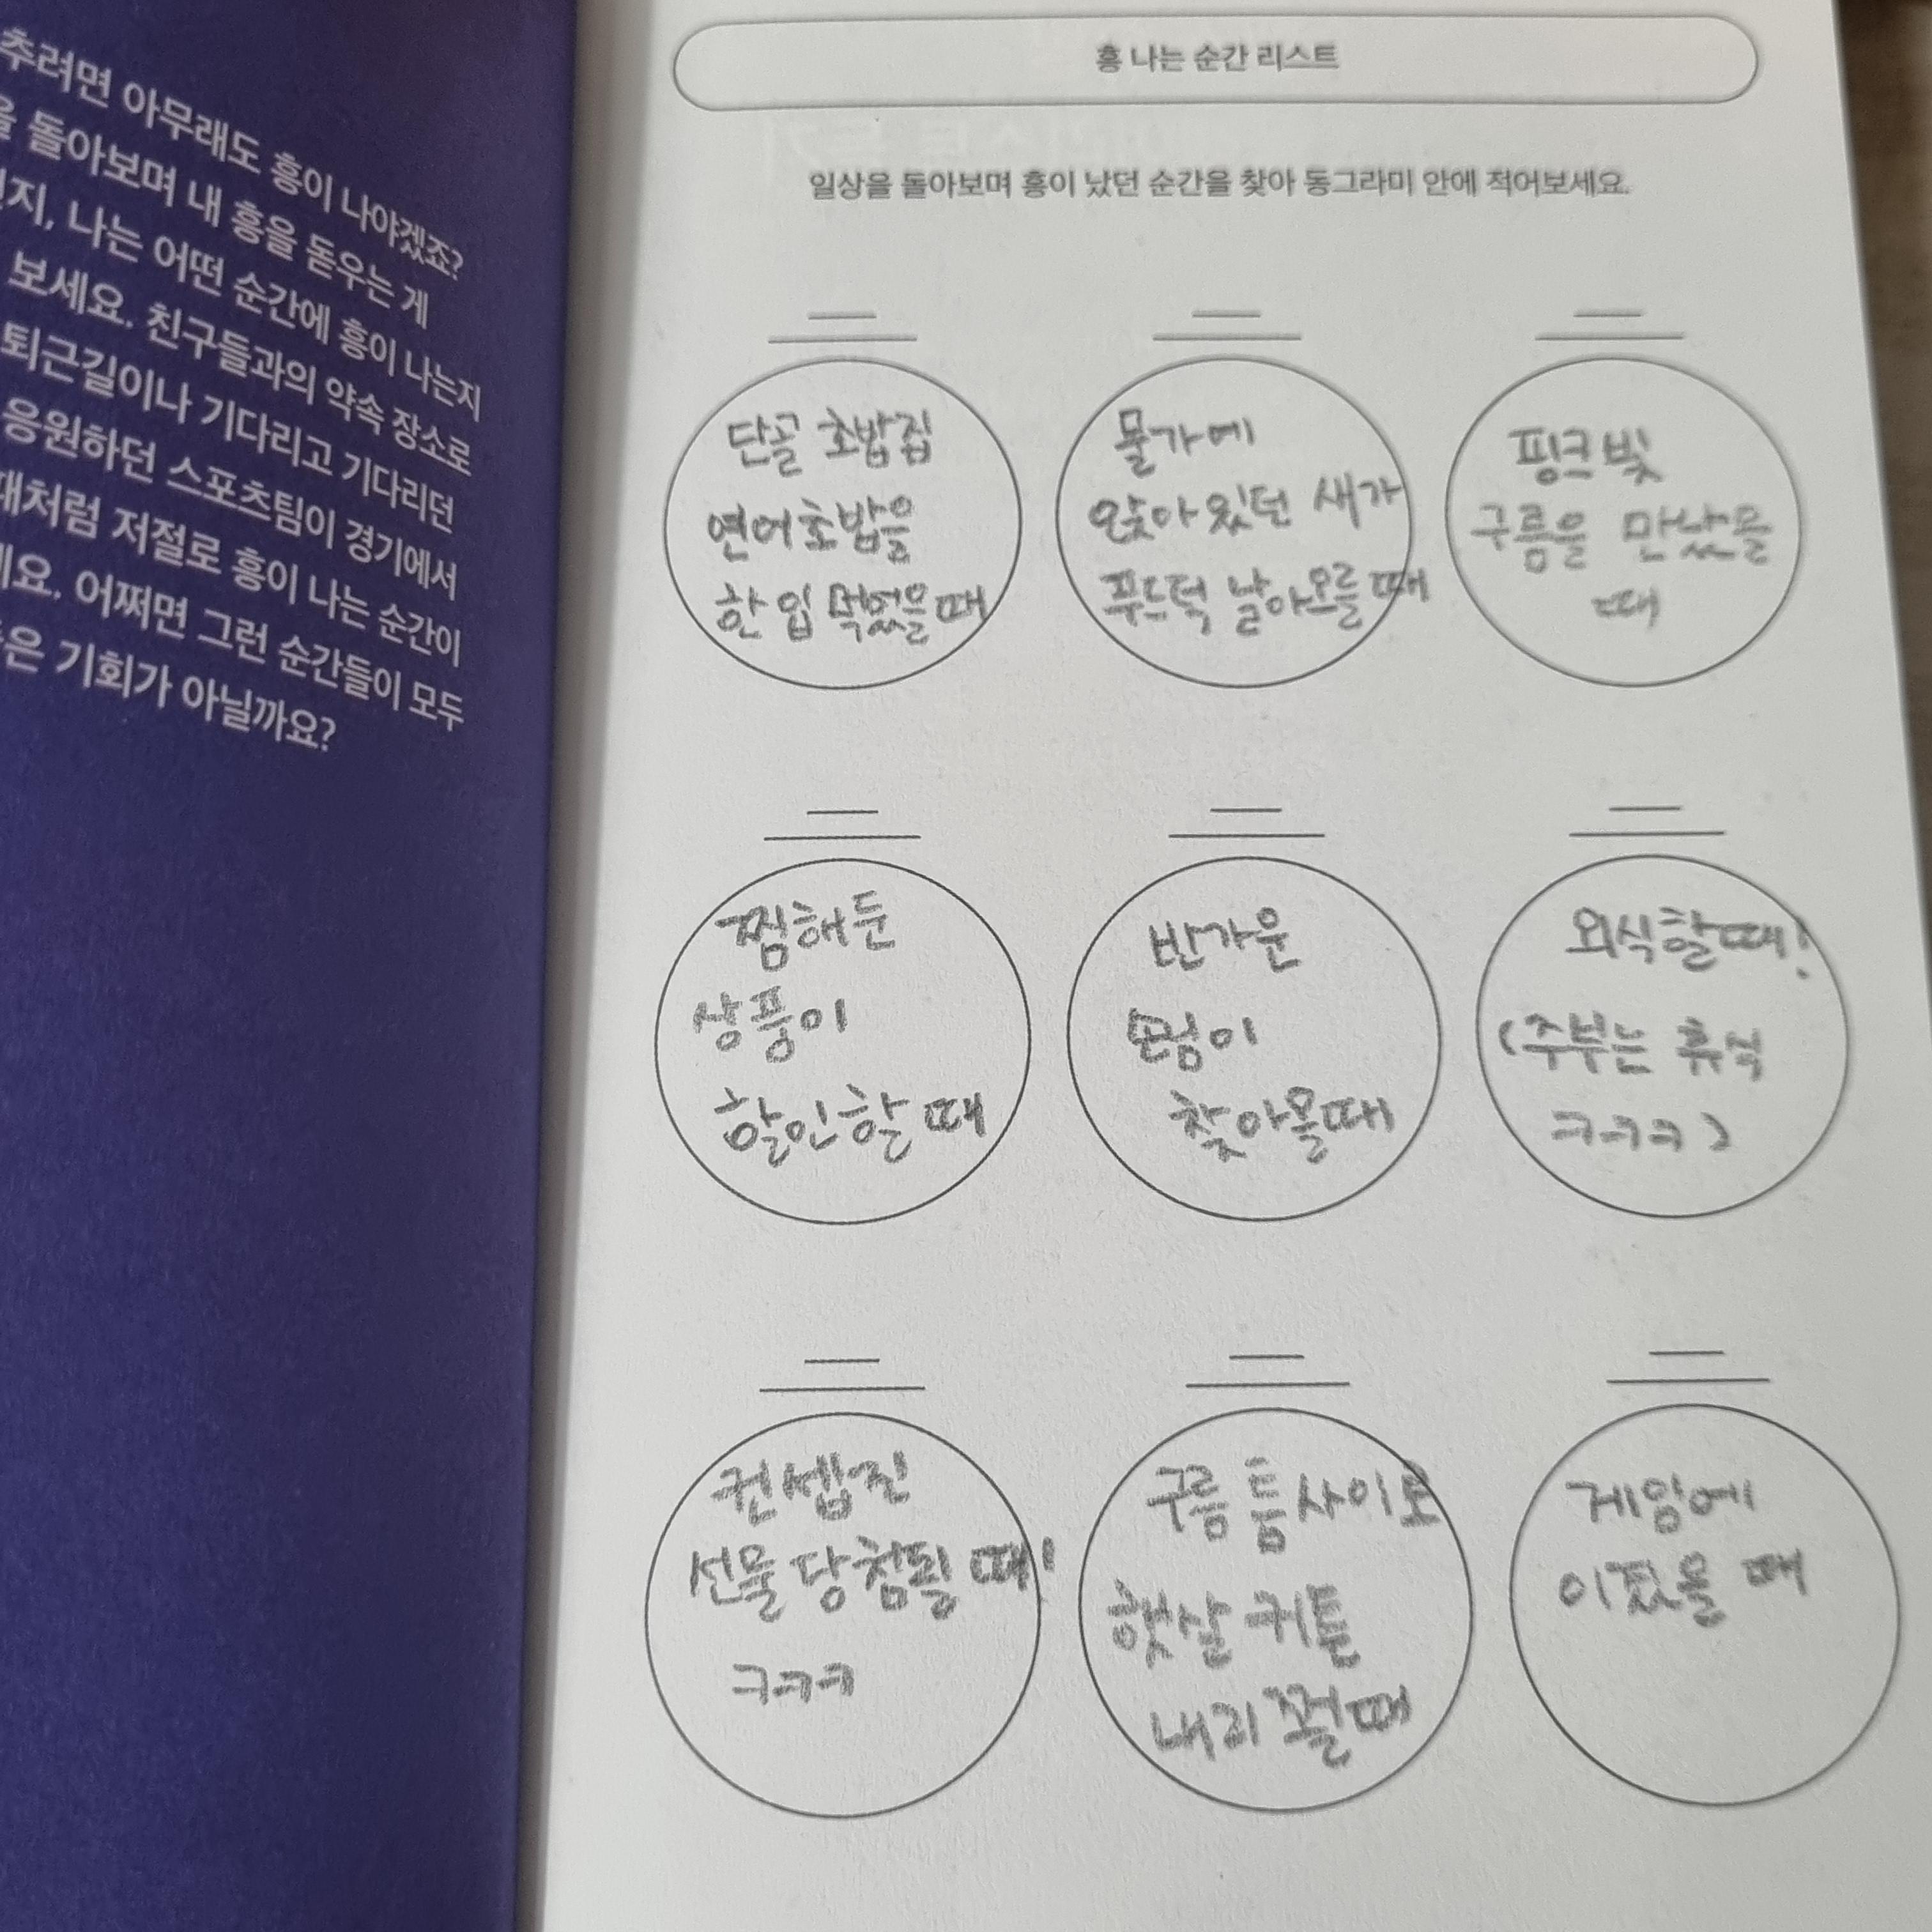 추려면 아무래도 흥이 나야겠죠?
을 돌아보며 내 흥을 돋우는 게
지, 나는 어떤 순간에 흥이 나는지
보세요. 친구들과의 약속 장소로
퇴근길이나 기다리고 기다리던
응원하던 스포츠팀이 경기에서
때처럼 저절로 흥이 나는 순간이
요. 어쩌면 그런 순간들이 모두
은 기회가 아닐까요?
흥 나는 순간 리스트
일상을 돌아보며 흥이 났던 순간을 찾아 동그라미 안에 적어보세요.
단골 초밥집
연어초밥을
한 입 먹었을때
물가에
앉아있던 새가
푸드덕 날아오를때
핑크빛
구름을 만났을
때
찜해둔
상품이
할인할 때
반가운
손님이
찾아올때
외식할때!
(주부는 휴식
ㅋㅋㅋ)
컨셉진
선물 당첨될 때!
ㅋㅋㅋ
구름 틈사이로
햇살 커튼
내리꽂힐때
게임에
이겼을 때